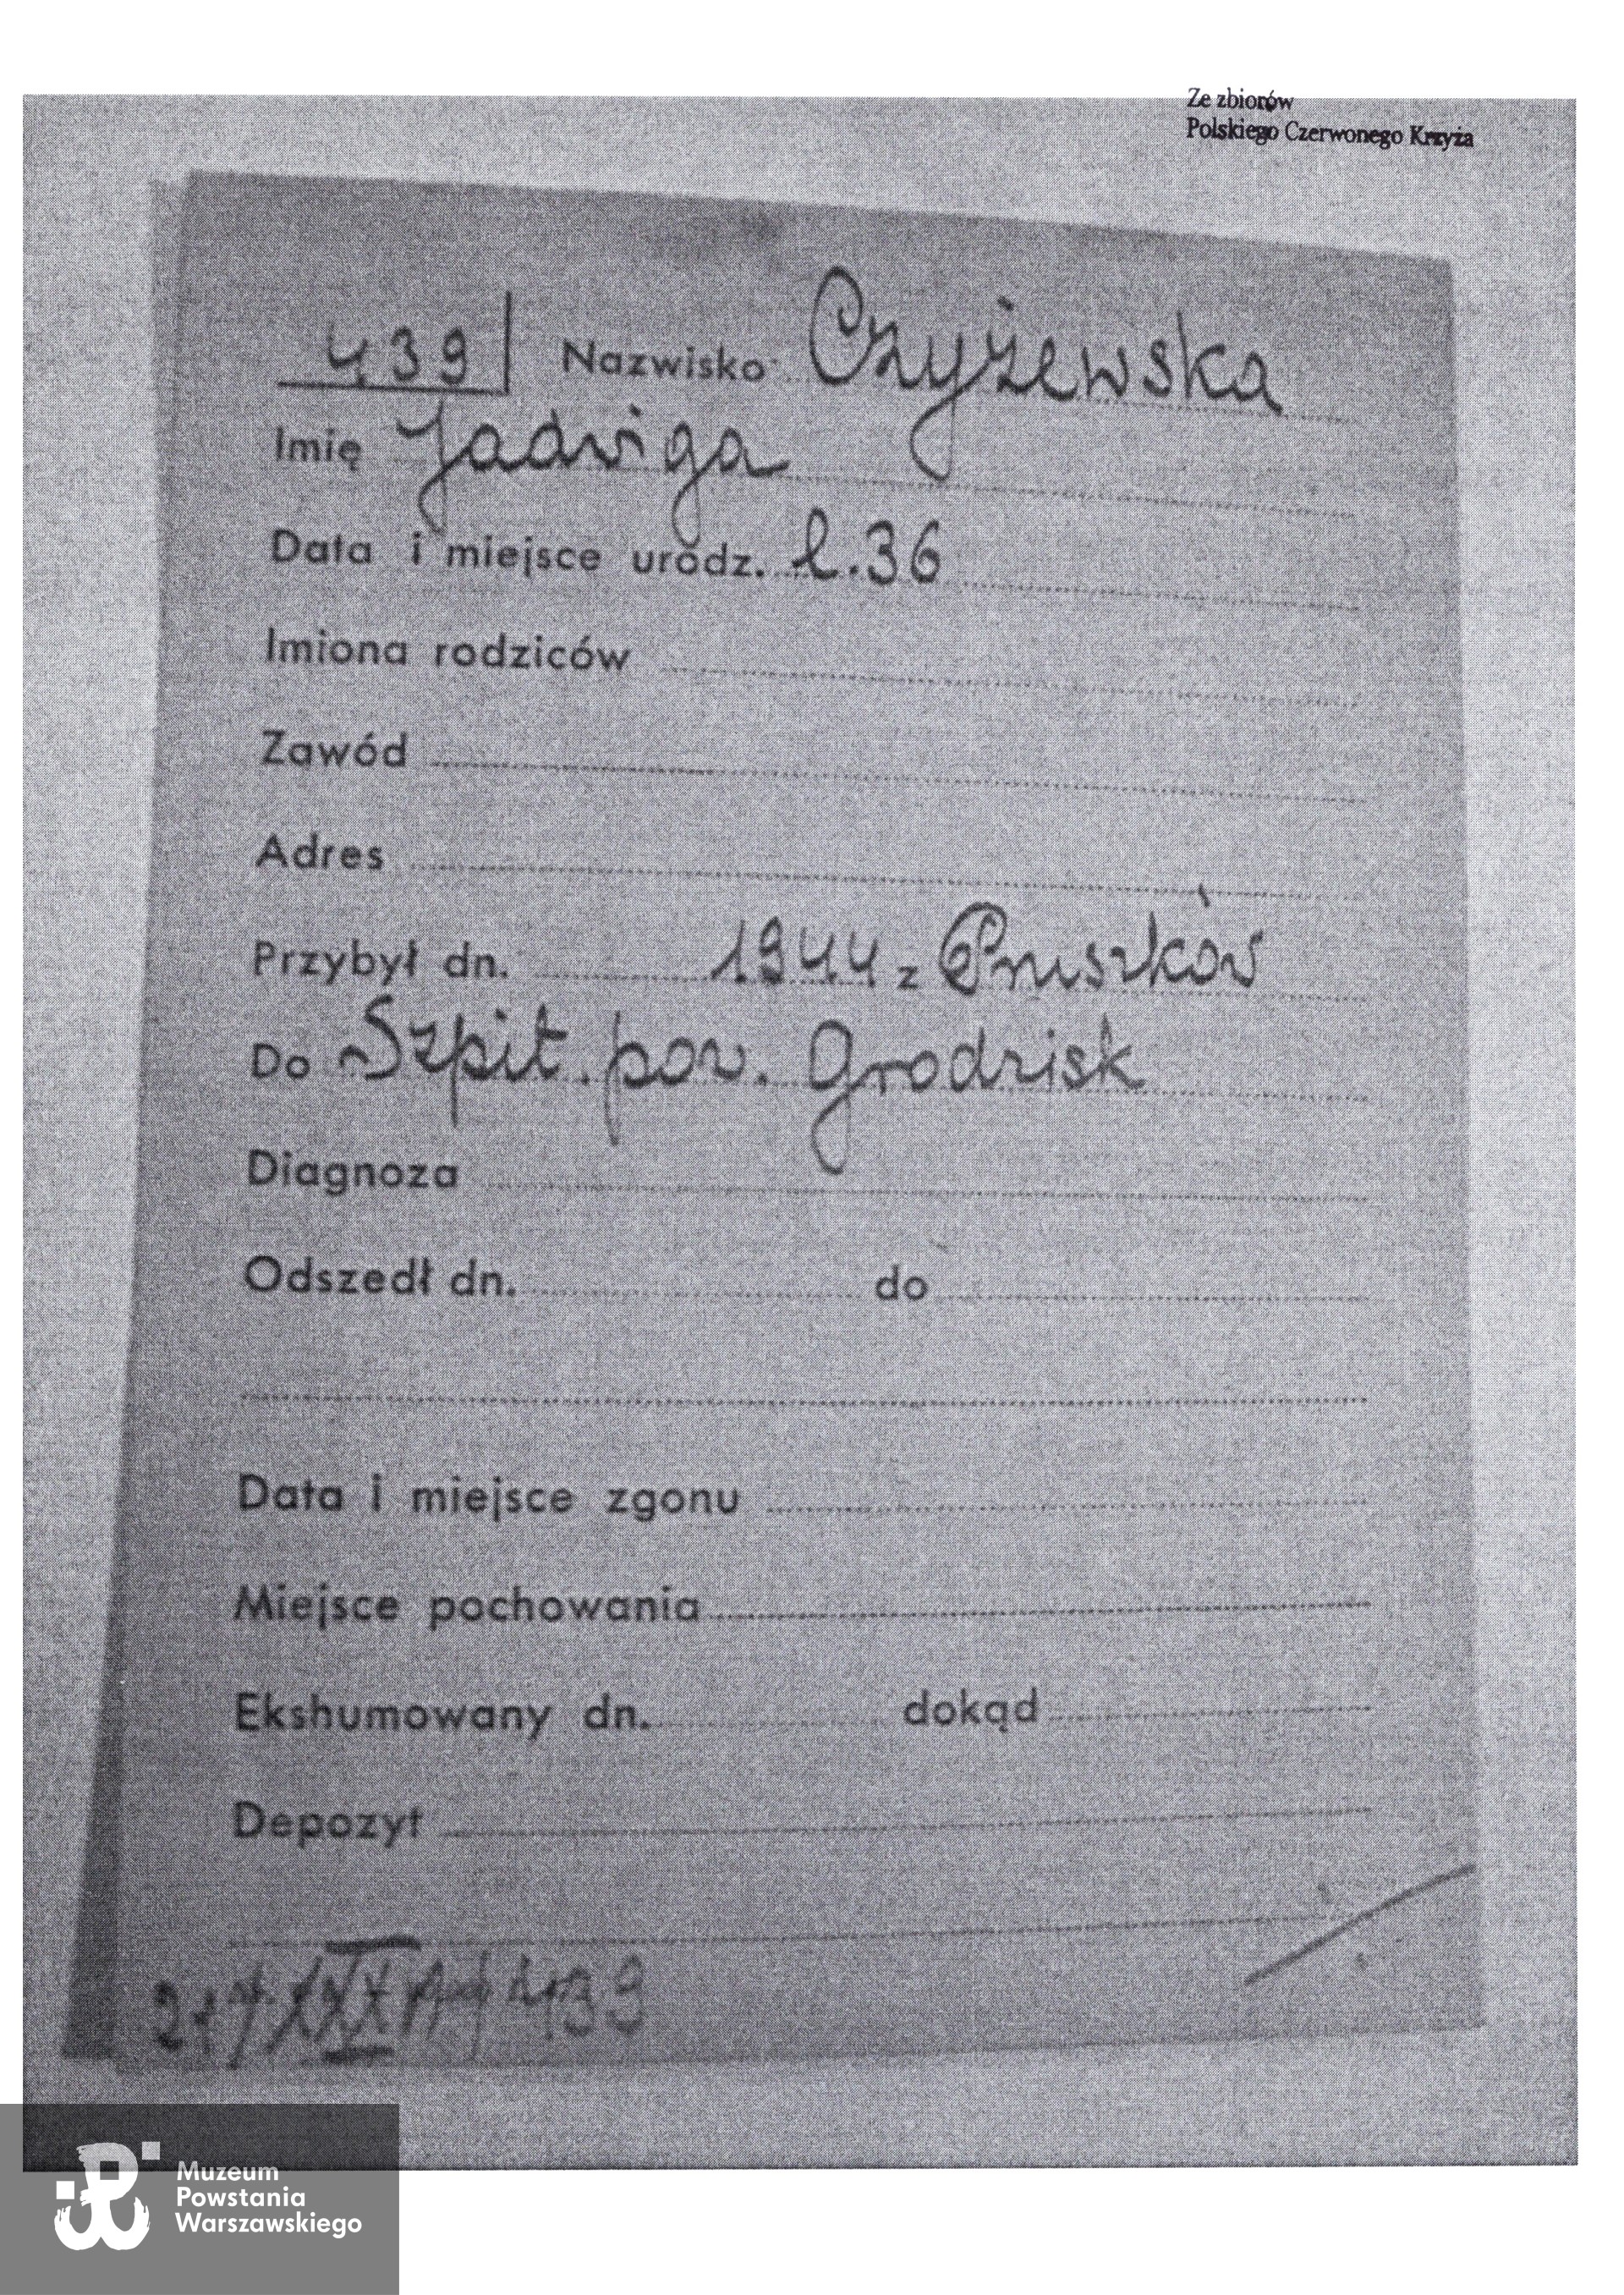 Ze zbiorów
Polskiego Czerwonego Krzyża
439 Nazwisko Czyżewska
Imię Jadwiga
Data i miejsce urodz. l. 36
Imiona rodziców
Zawód
Adres
Przybył dn. 1944 z Pruszków
Do Szpit. pow. Grodzisk
Diagnoza
Odszedł dn. do
Data i miejsce zgonu
Miejsce pochowania
Ekshumowany dn. dokąd
Depozyt
439
Muzeum
Powstania
Warszawskiego